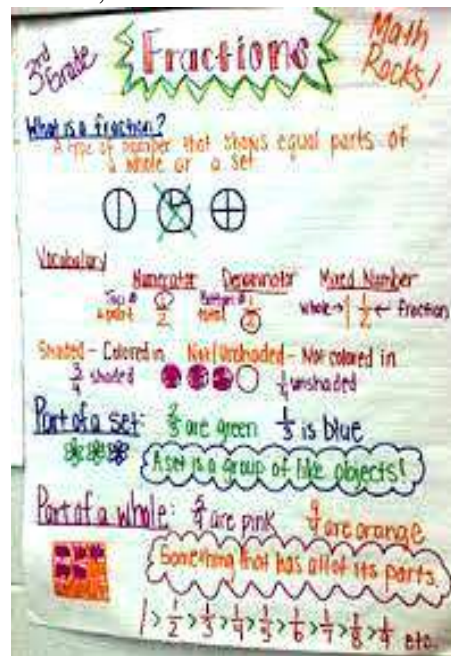 3rd Grade
Fractions
Math Rocks!
What is a fraction?
A type of number that shows equal parts of
a whole or a set
Vocabulary
Numerator Denominator Mixed Number
Top # 1/2 Bottom # 1/2 whole→ 1 1/2 ← fraction
Shaded - Colored in Not/Unshaded - Not colored in
3/4 shaded 1/4 unshaded
Part of a set: 2/3 are green 1/3 is blue
A set is a group of like objects!
Part of a whole: are pink are orange
Something that has all of its parts.
1 > 1/2 > 1/3 > 1/4 > 1/5 > 1/6 > 1/7 > 1/8 > 1/9 etc.